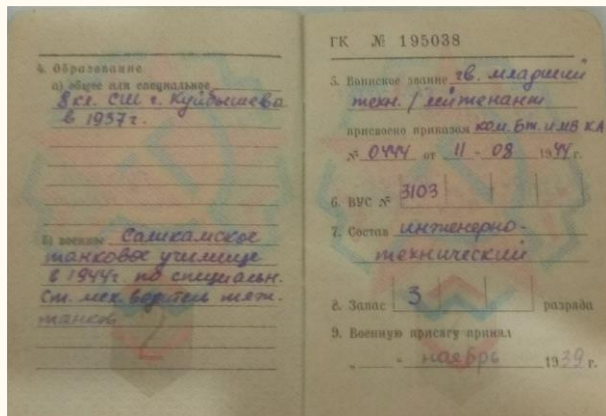 4. Образование
а) общее или специальное
8 кл. СШ г. Куйбышева
в 1937 г.
б) военное Саликамское
танковое училище
в 1944г. по специальн.
Ст. мех. водитель тяж.
танков
ГК № 195038
5. Воинское звание гв. младший
техн. / лейтенант
присвоено приказом ком. бт. и МВ КА
№ 0444 от 11 - 08 1944 г.
6. ВУС № 3103
7. Состав инженерно-
технический
8. Запас 3 разряда
9. Военную присягу принял
„ - “ наебрь 1939 г.